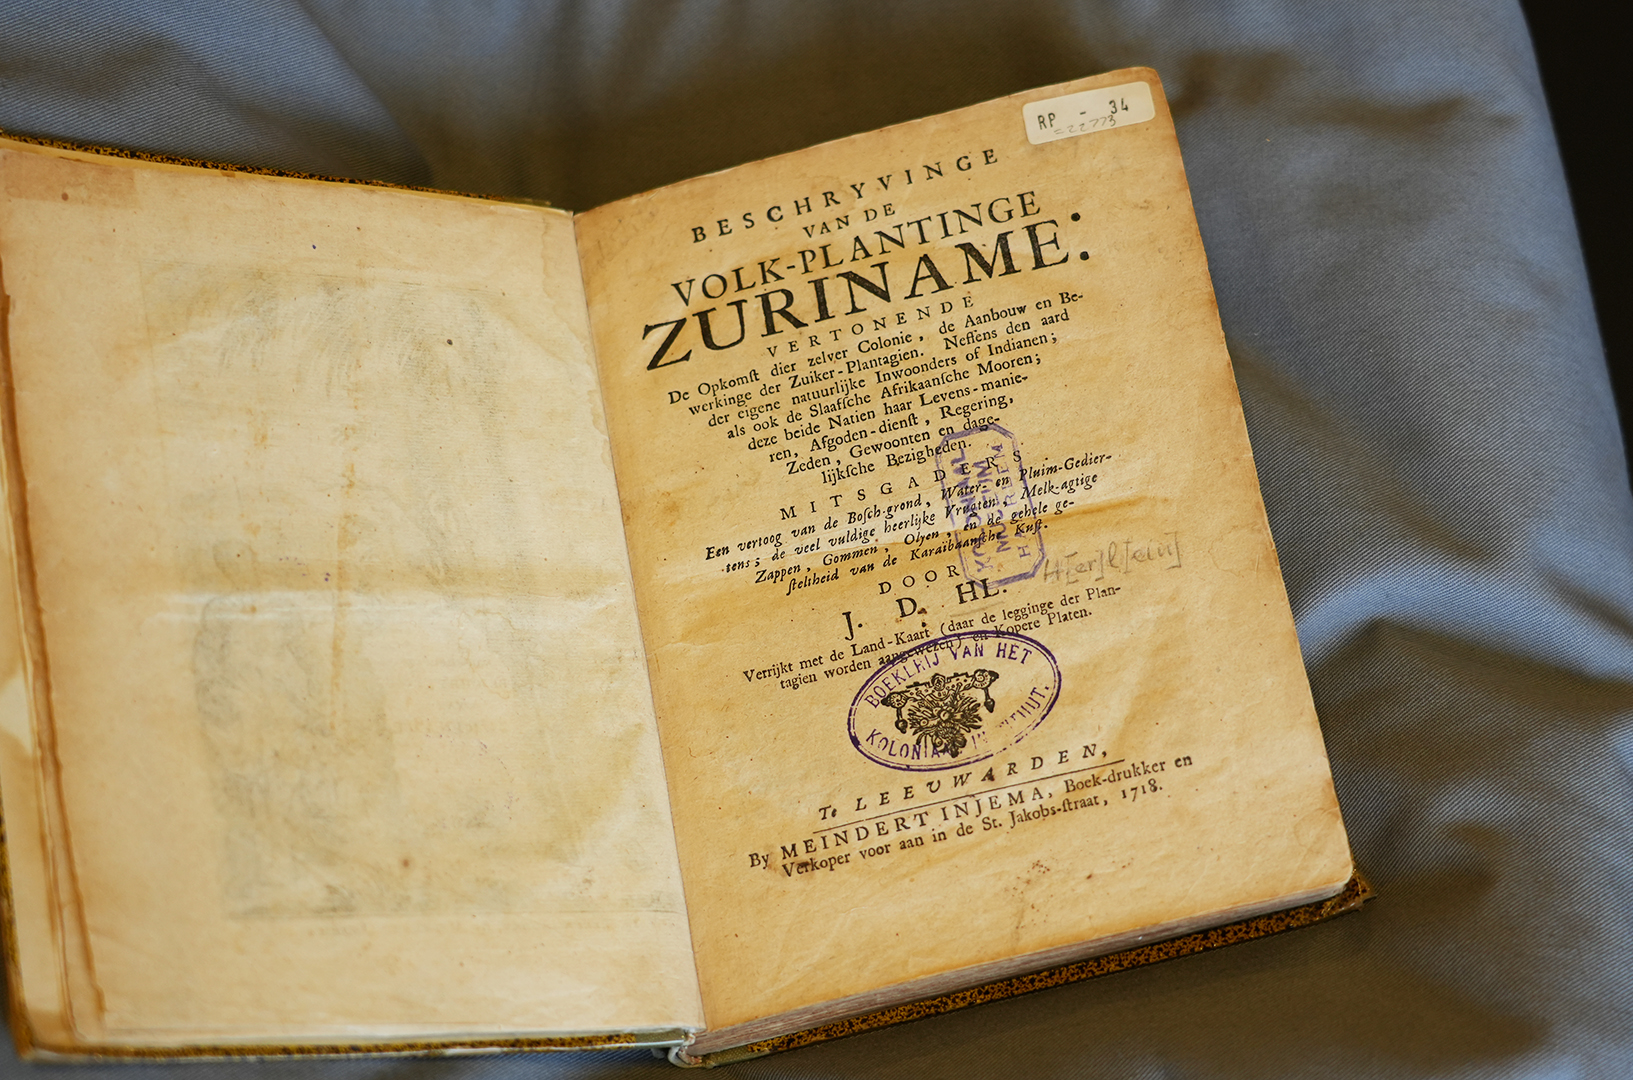 RP - 34
=22773
BESCHRYVINGE
VAN DE
VOLK-PLANTINGE
ZURINAME:
VERTONENDE
De Opkomſt dier zelver Colonie, de Aanbouw en Be-
werkinge der Zuiker-Plantagien. Neffens den aard
der eigene natuurlijke Inwoonders of Indianen;
als ook de Slaafſche Afrikaanſche Mooren;
deze beide Natien haar Levens-manie-
ren, Afgoden-dienſt, Regering,
Zeden, Gewoonten en dage-
lijkſche Bezigheden.
MITSGADERS
Een vertoog van de Boſch-grond, Water- en Pluim-Gedier-
tens; de veel vuldige heerlijke Vrugten, Melk-agtige
Zappen, Gommen, Olyen, en de gehele ge-
ſteltheid van de Karaïbaanſche Kuſt.
KOLONIAAL
MUSEUM
HAARLEM
DOOR
J. D. HL.
H[er]l[ein]
Verrijkt met de Land-Kaart (daar de legginge der Plan-
tagien worden aangewezen) en Kopere Platen.
BOEKERIJ VAN HET
KOLONIAAL INSTITUUT.
Te LEEUWARDEN,
By MEINDERT INJEMA, Boek-drukker en
Verkoper voor aan in de St. Jakobs-ſtraat, 1718.